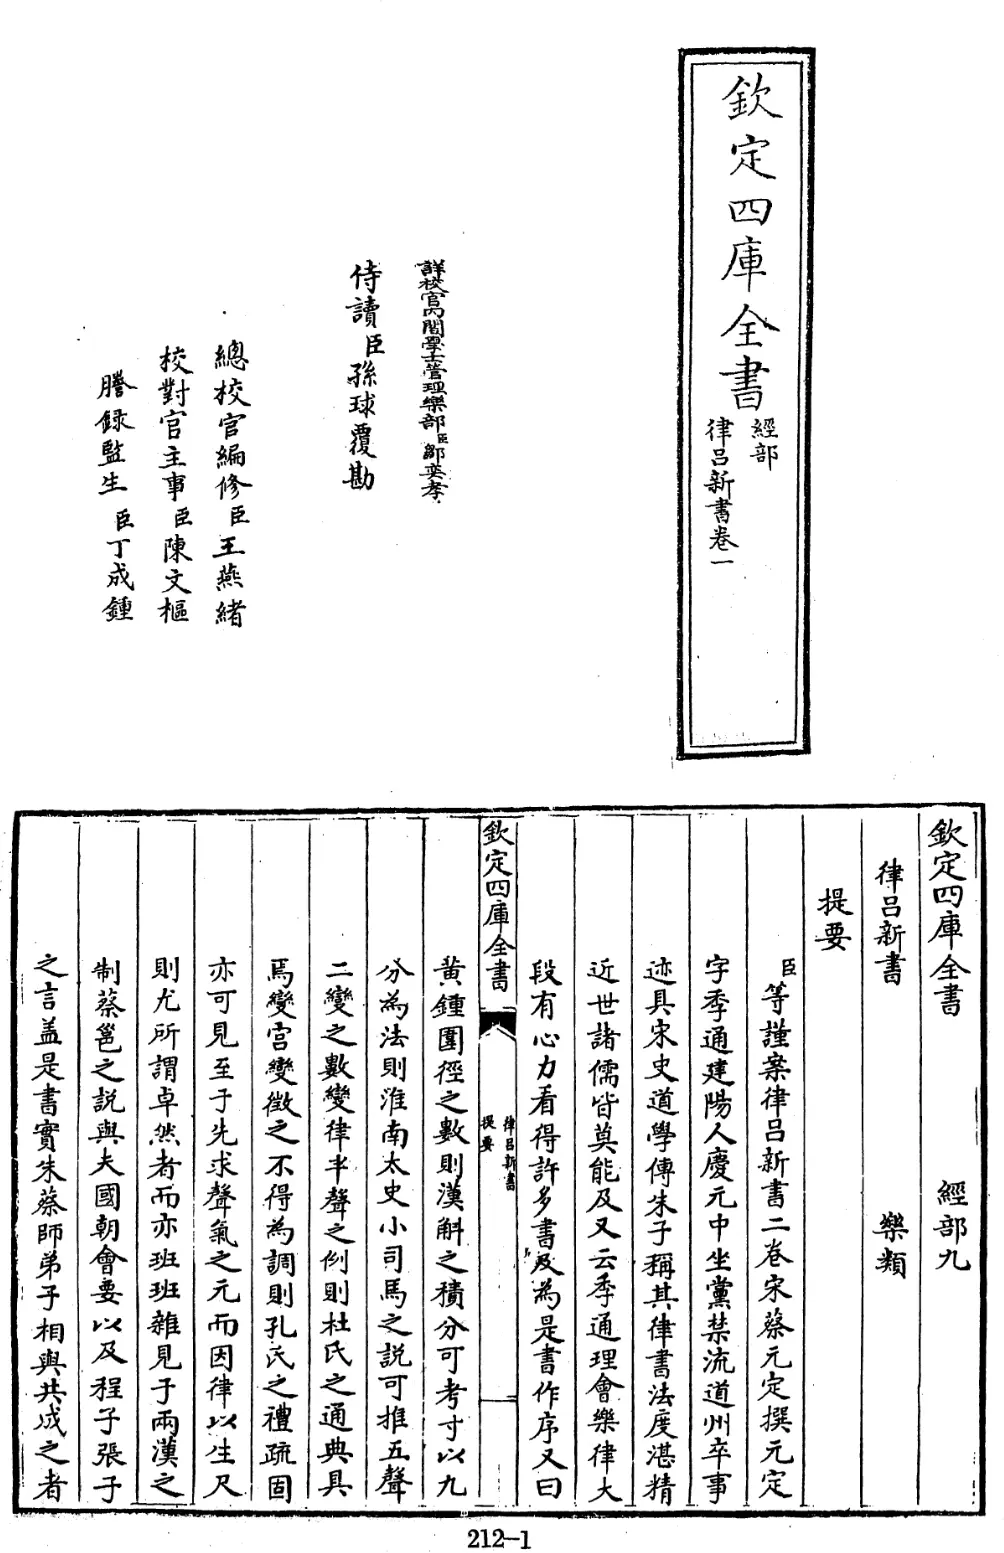 欽定四庫全書
經部
律呂新書卷一
詳校官內閣學士管理樂部臣鄒奕孝
侍讀臣孫球覆勘
總校官編修臣王燕緒
校對官主事臣陳文樞
謄錄監生臣丁成鍾
欽定四庫全書 經部九
律呂新書 樂類
提要
臣等謹案律呂新書二卷宋蔡元定撰元定
字季通建陽人慶元中坐黨禁流道州卒事
迹具宋史道學傳朱子稱其律書法度湛精
近世諸儒皆莫能及又云季通理會樂律大
段有心力看得許多書及為是書作序又曰
欽定四庫全書
律呂新書
提要
黄鍾圍徑之數則漢斛之積分可考寸以九
分為法則淮南太史小司馬之説可推五聲
二變之數變律半聲之例則杜氏之通典具
焉變宫變徴之不得為調則孔氏之禮疏固
亦可見至于先求聲氣之元而因律以生尺
則尤所謂卓然者而亦班班雜見于兩漢之
制蔡邕之説與夫國朝會要以及程子張子
之言盖是書實朱蔡師弟子相與共成之者
212-1